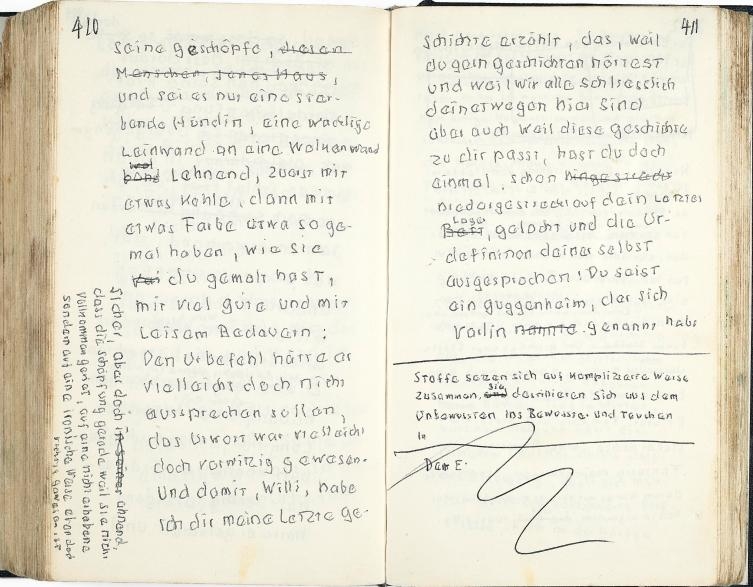 410
seine geschöpfe, diesen
Menschen, jenes Haus,
und sei es nur eine ster-
bende Hündin, eine wacklige
Leinwand an eine Wolkenwand
wol
band Lehnend, zuerst mit
etwas Kohle, dann mit
etwas Farbe etwa so ge-
malt haben, wie sie
du gemalt hast,
mit viel güte und mit
Leisem Bedauern:
Den Urbefehl hätte er
vielleicht doch nicht
aussprechen sollen,
das Urwort war vielleicht
doch vorwitzig gewesen.
Und damit, Willi, habe
ich dir meine Letzte Ge-
Sicher, aber doch in seiner ahnend,
dass die schöpfung gerade weil sie nicht
vollkommen geriet, auf eine nicht erhabene
sondern auf eine ironische Weise eben doch
411
schichte erzählt, das, weil
du gern geschichten hörtest
und weil wir alle schliesslich
deinetwegen hier sind
aber auch weil diese geschichte
zu dir passt, hast du doch
einmal, schon hingestreckt
niedergestreckt auf dein Letztes
Lager
Bett, gelacht und die Ur-
definition deiner selbst
ausgesprochen: Du seist
ein guggenheim, der sich
Varlin nannte. genannt habe
Stoffe setzen sich auf komplizierte Weise
zusammen, sie destillieren sich aus dem
Unbewussten ins Bewusste und tauchen
in
Dem E.